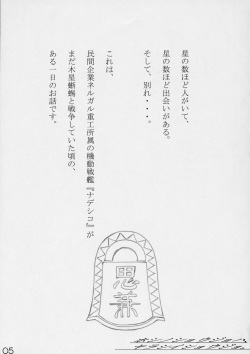 星の数ほど人がいて、
星の数ほど出会いがある。
そして、別れ・・・。
これは、
民間企業ネルガル重工所属の機動戦艦『ナデシコ』が
まだ木星蜥蜴と戦争していた頃の、
ある一日のお話です。
思兼
05